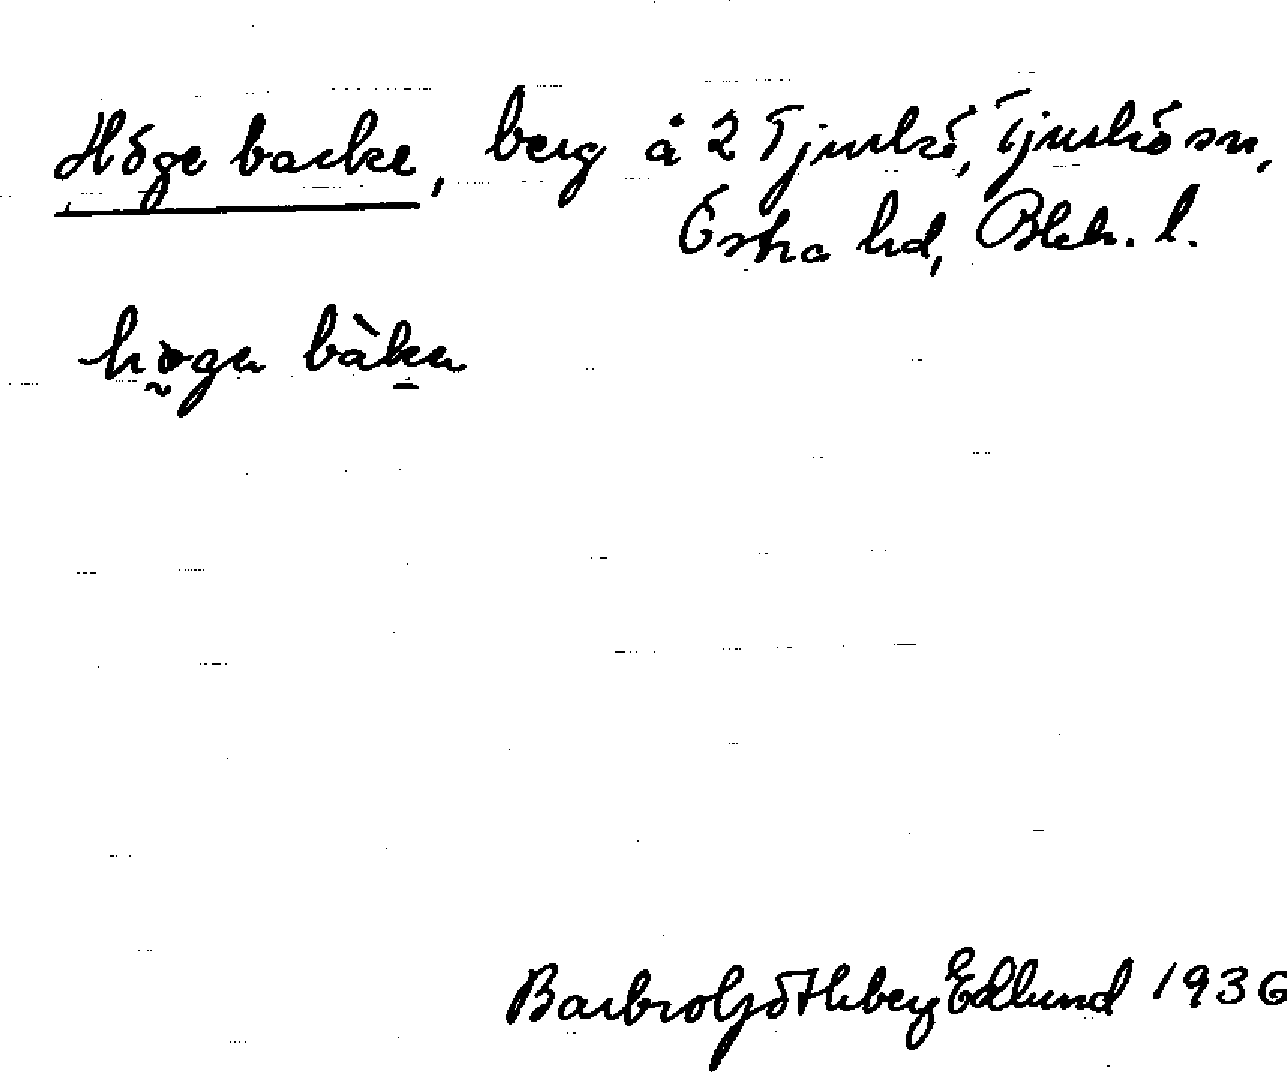 Höge backe, berg å 2 Tjurkö, Tjurkö sn,
Östra hd, Blek. l.
Barbro Göthberg Edlund 1936